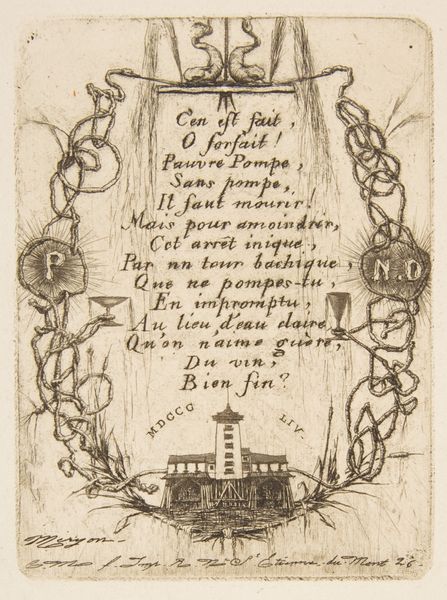 C'en est fait,
O forfait!
Pauvre Pompe,
Sans pompe,
Il faut mourir!
Mais pour amoindrir,
Cet arrêt inique,
Par un tour bachique,
Que ne pompes-tu,
En impromptu,
Au lieu d'eau claire,
Qu'on n'aime guère,
Du vin,
Bien fin?
P
N.D
MDCCC LIV.
Meryon
f. Imp. R. N. St. Etienne-du-Mont 26.